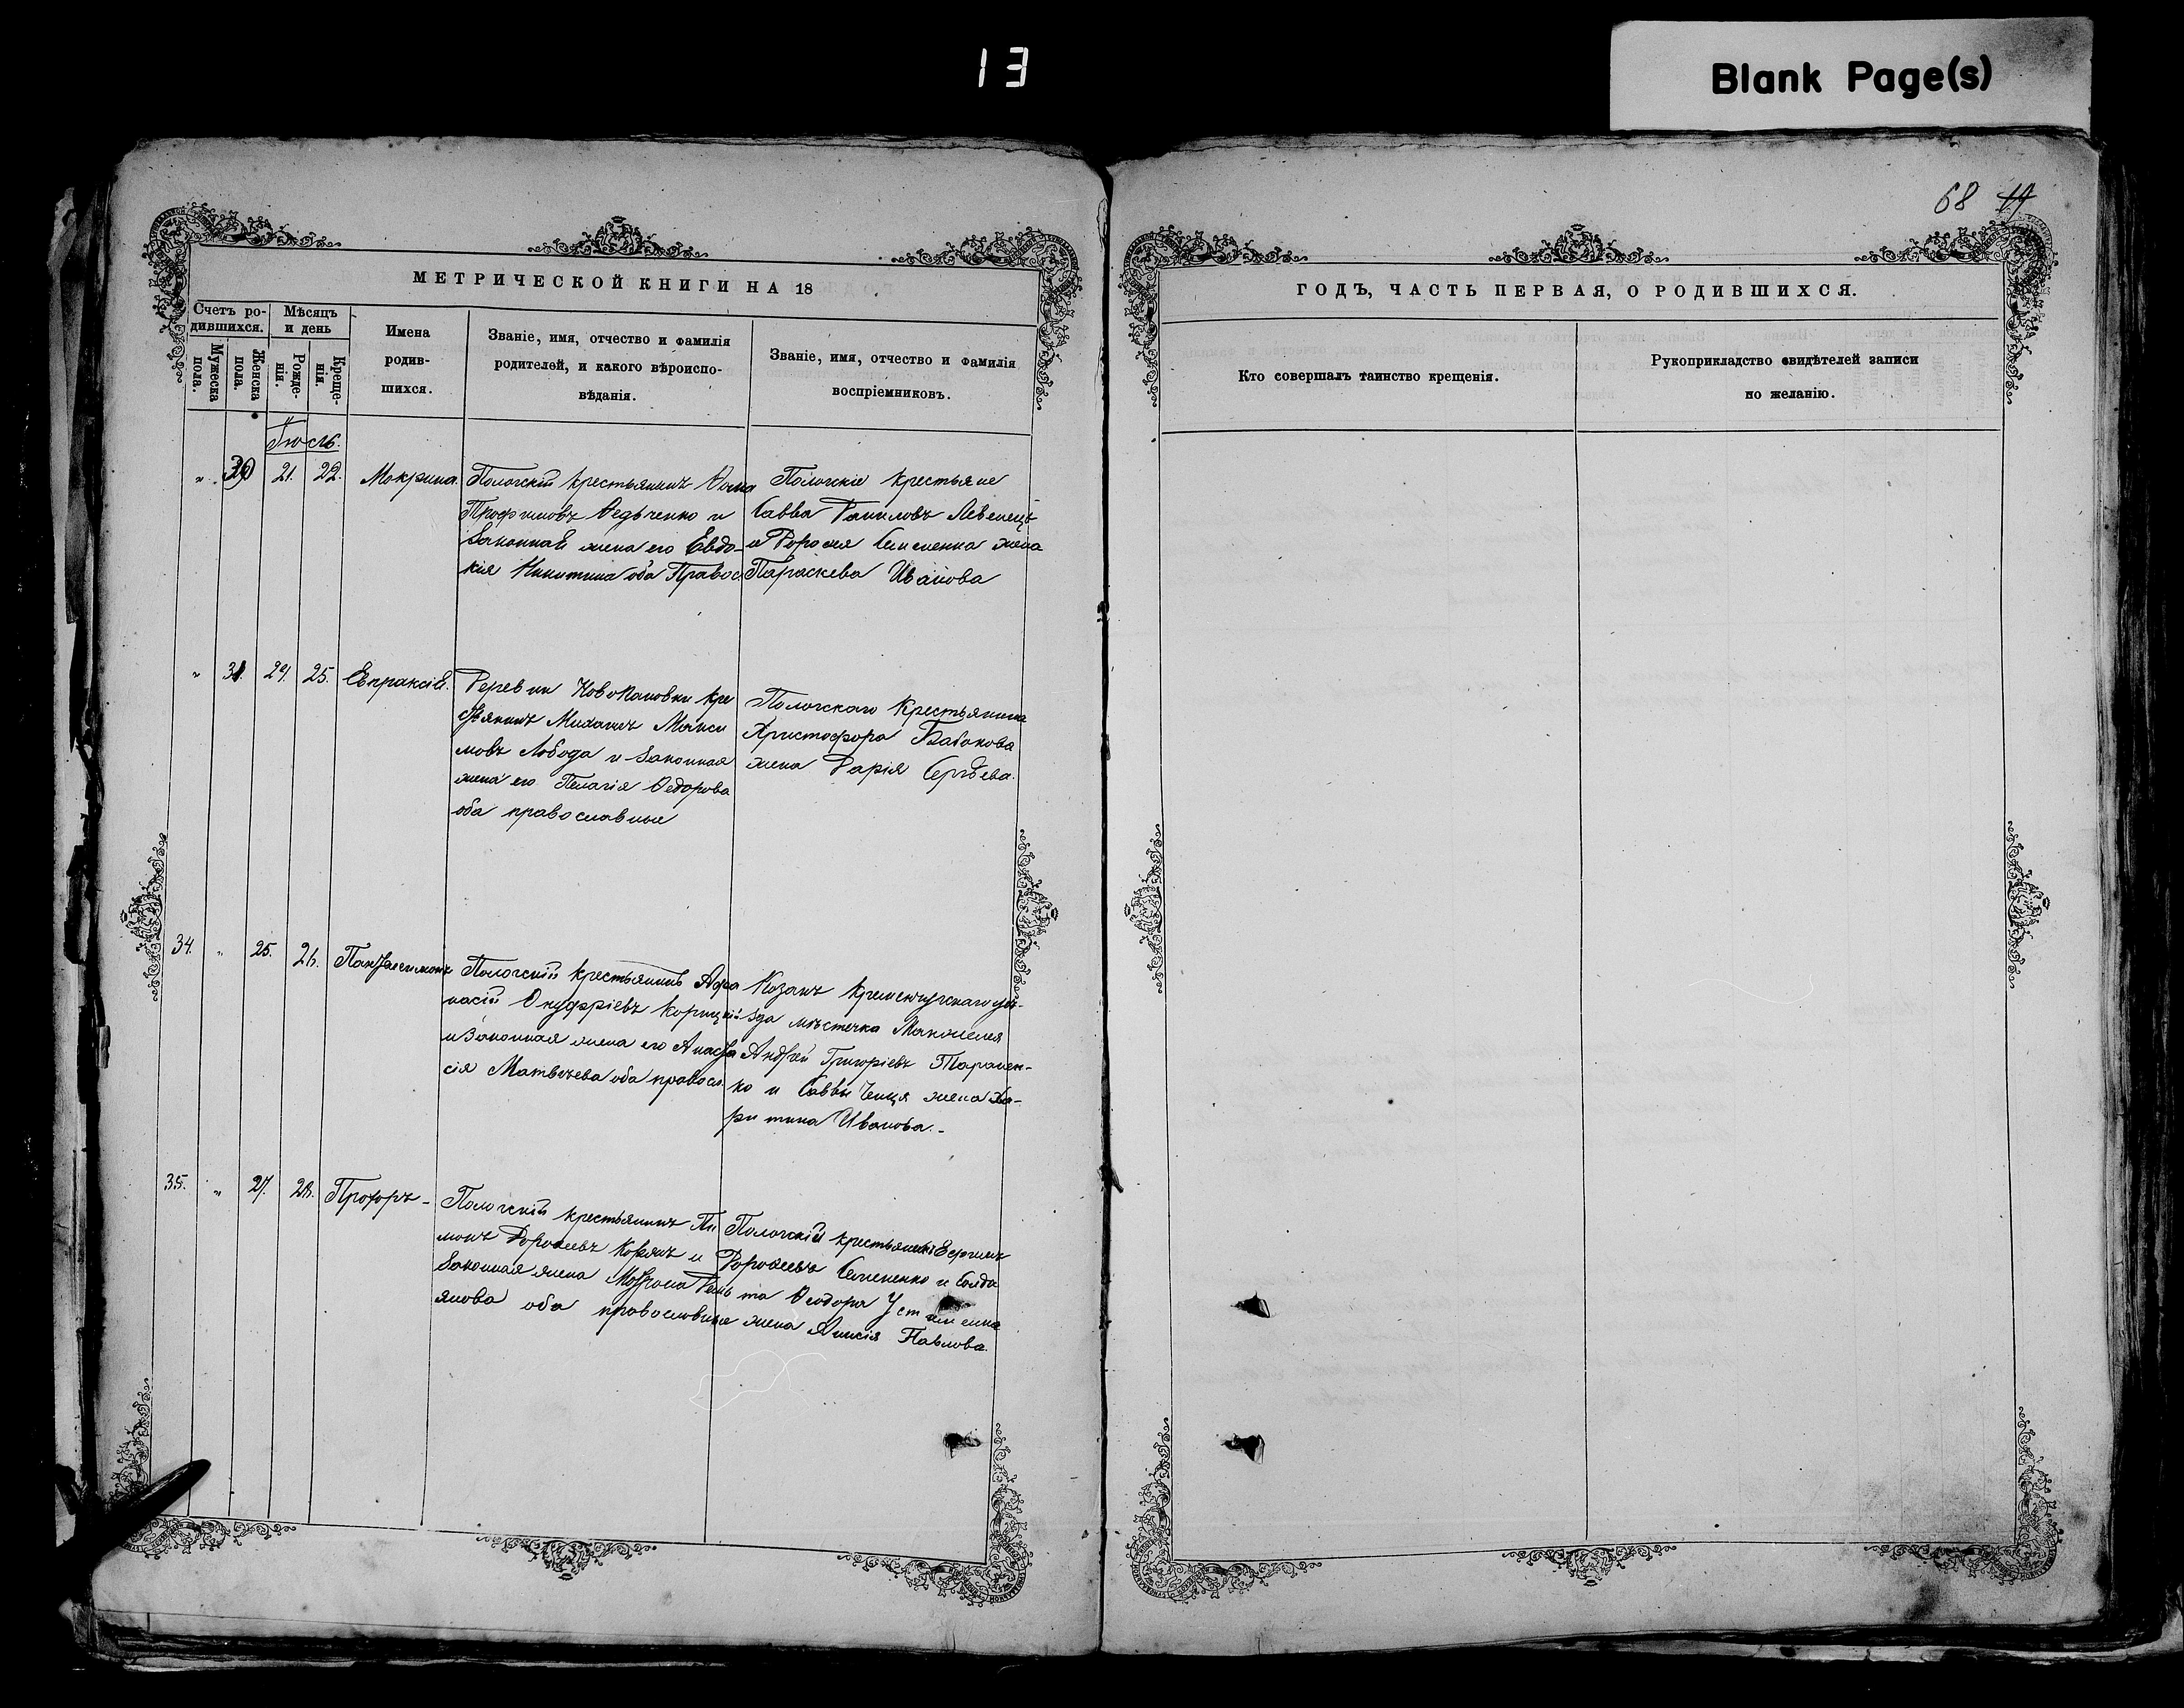 13
Blank Page(s)
68 14
МЕТРИЧЕСКОЙ КНИГИ НА 18
Счетъ ро-
дившихся.
Мужеска
пола.
Женска
пола.
Мѣсяцъ
и день
Рожде-
нія.
Креще-
нія.
Имена
родив-
шихся.
Званіе, имя, отчество и фамилія
родителей, и какого вѣроиспо-
вѣданія.
Званіе, имя, отчество и фамилія
воспріемниковъ.
Іюль.
" 30 21. 22. Мокрина.
Пологскій крестьянинъ Ѳома
Трофимовъ Ѳедьченко и
законная жена его Евдо-
кія Никитина оба Правос
Пологскіе крестьяне
Савва Даниловъ Левенецъ
и Дороѳея Семененка жена
Параскева Иванова
" 31 24. 25. Евпраксія.
Деревни Новопановки кре
стьянинъ Михаилъ Макси
мовъ Лобода и законная
жена его Пелагія Ѳедорова
оба православные
Пологскаго крестьянина
Христофора Бабакова
жена Дарія Сергѣева.
34. " 25. 26. Пантелеимонъ
Пологскій крестьянинъ Афа
насій Онуфріевъ Корицкій
и законная жена его Анаста
сія Матвѣева оба правосл.
Козакъ Кременчугскаго уѣ-
зда мѣстечка Манжелея
Андрей Григоріевъ Таранен-
ко и Саввы жена Ха-
ритина Иванова.-
35. " 27. 28. Прохоръ -
Пологскій крестьянинъ Пи
монъ Дороѳеевъ Коржъ и
законная жена Матрона Демь
янова оба православные
Пологскій крестьянинъ Ефимъ
Дороѳеевъ Семененко и Солда
та Ѳеодора Устименка
жена Анисія Павлова.
ГОДЪ, ЧАСТЬ ПЕРВАЯ, О РОДИВШИХСЯ.
Кто совершалъ таинство крещенія.
Рукоприкладство свидѣтелей записи
по желанію.